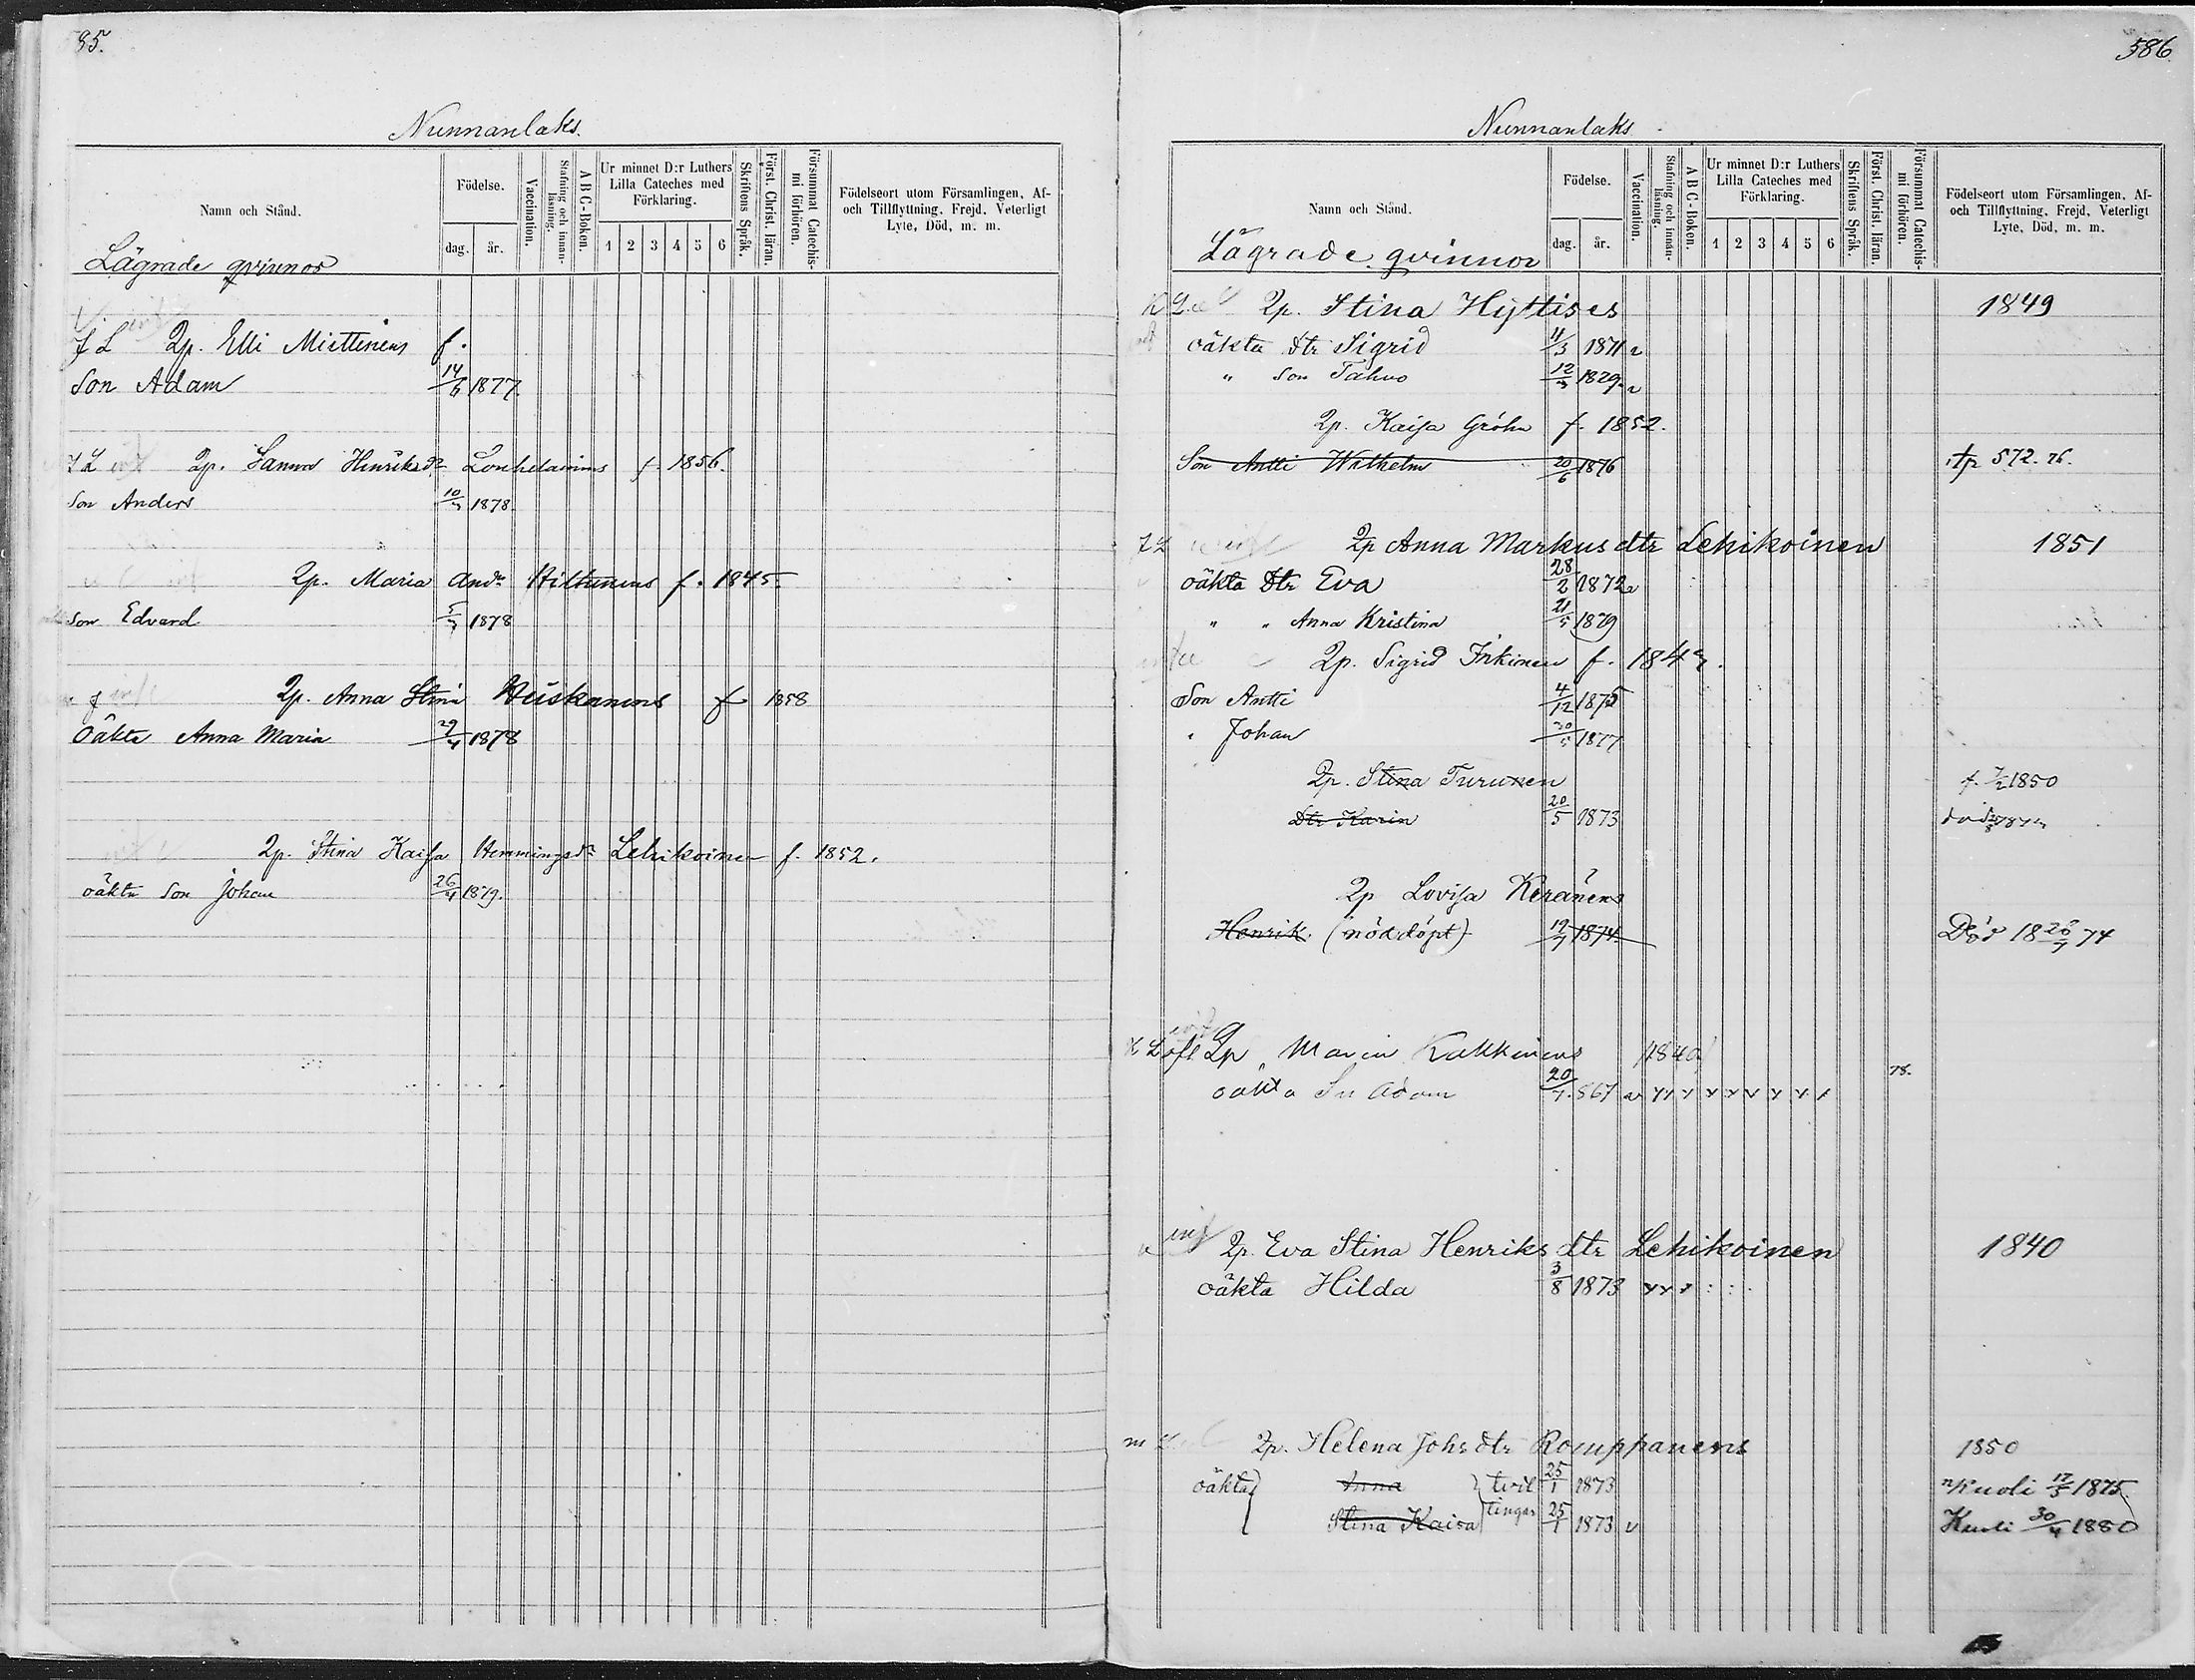 85.
Nunnanlaks.
Namn och Stånd.
Födelse.
dag. år.
Vaccination.
Stafning och innan-läsning.
A B C-Boken.
Ur minnet D:r Luthers Lilla Cateches med Förklaring.
1 2 3 4 5 6
Skriftens Språk.
Först. Christ. läran.
Försummat Catechis-mi förhören.
Födelseort utom Församlingen, Af- och Tillflyttning, Frejd, Veterligt Lyte, Död, m. m.
Lägrade qvinnor
Qp. Elli Miettinens f.
Son Adam 14/6 1877.
Qp. Sanna Henriksdr f. 1856.
Son Anders 10/3 1878
Qp. Maria Andr Hiltunens f. 1845.
Son Edvard 5/7 1878
Qp. Anna Stina Heiskanens f 1858
Oäkta Anna Maria 29/4 1878
Qp. Stina Kaisa Hemmingsdr Lehikoinen f. 1852.
oäkta son Johan 26/4 1879.
586
Nunnanlaks
Namn och Stånd.
Födelse.
dag. år.
Vaccination.
Stafning och innan-läsning.
A B C-Boken.
Ur minnet D:r Luthers Lilla Cateches med Förklaring.
1 2 3 4 5 6
Skriftens Språk.
Först. Christ. läran.
Försummat Catechis-mi förhören.
Födelseort utom Församlingen, Af- och Tillflyttning, Frejd, Veterligt Lyte, Död, m. m.
Lägrade qvinnor
Qp. Stina Hyttises 1849
oäkta dtr Sigrid 11/3 1871
" son Tahvo 12/3 1879
Qp. Kaisa Gröhn f. 1852.
Son Antti Wilhelm 20/6 1876 572. 76.
Qp Anna Markus dtr Lehikoinen 1851
oäkta Dtr Eva 28/2 1872
" " Anna Kristina 21/5 1879
Qp. Sigrid Inkinen f. 1847.
Son Antti 4/12 1875
" Johan 30/5 1877
Qp. Stina Turunen f. 7/2 1850
Dtr Karin 20/5 1873
Qp Lovisa Keränens
Henrik (nöddöpt) 19/7 1874 Död 18 20/7 74
Qp Maria Kakkinens 1840
oäkta Sn Adam 20/7 867 78.
Qp. Eva Stina Henriks dtr Lehikoinen 1840
oäkta Hilda 3/8 1873
Qp. Helena Johs dtr Romppanens 1850
oäkta Anna tvil 25/1 1873 Kuoli 17/5 1875
Stina Kaisa lingar 25/1 1873 Kuoli 30/4 1880